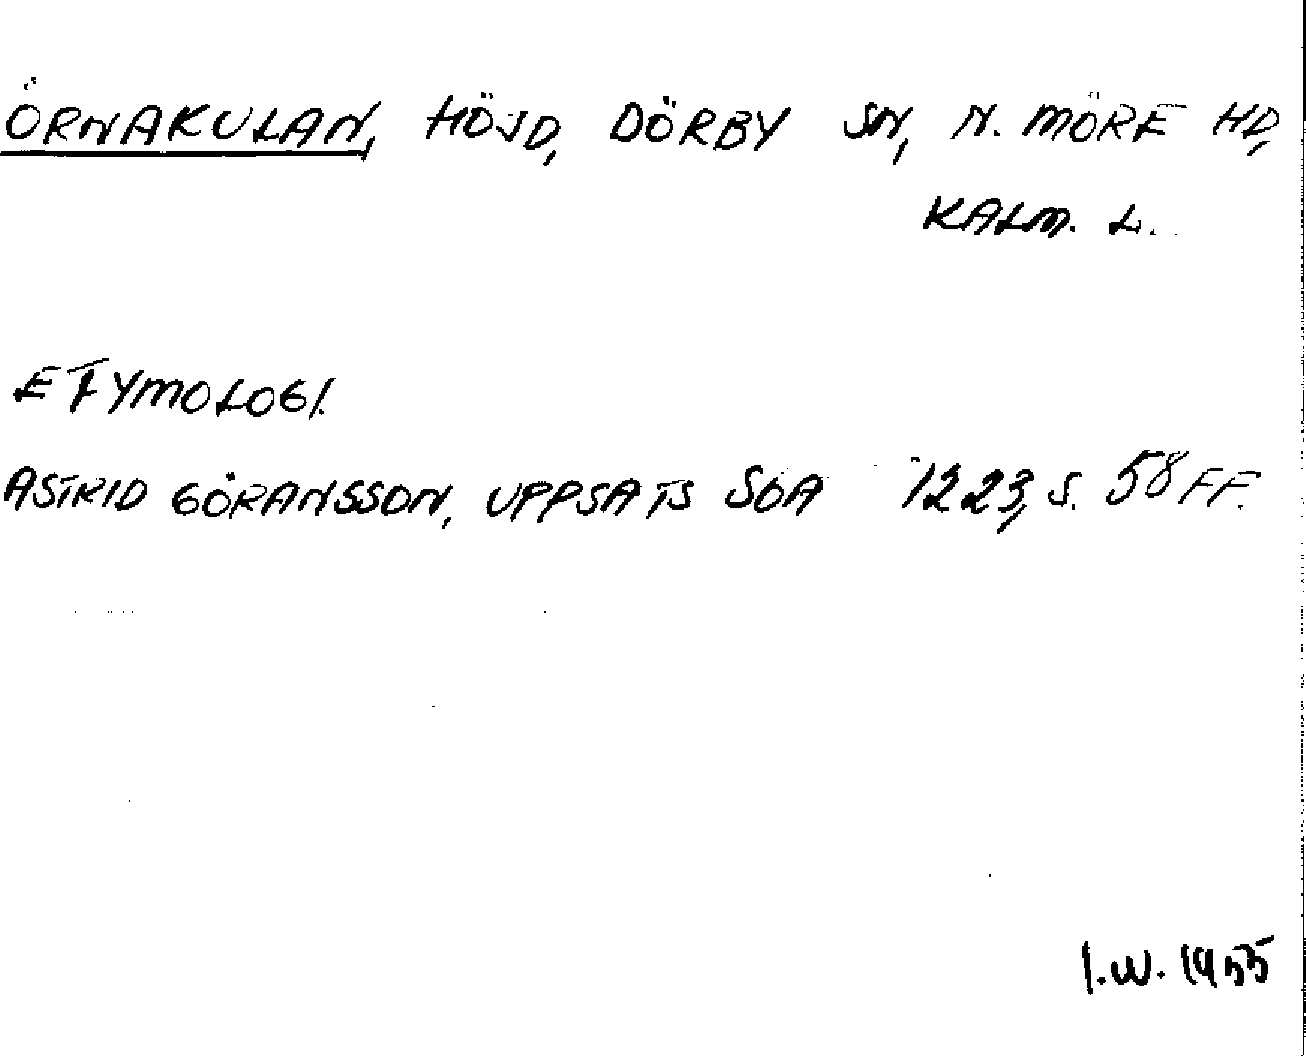 ÖRNAKULAN, HÖJD, DÖRBY SN, N. MÖRE HD,
KALM. L.
ETYMOLOGI.
ASTRID GÖRANSSON, UPPSATS SOA 1223, S. 58 FF.
I.W. 1955